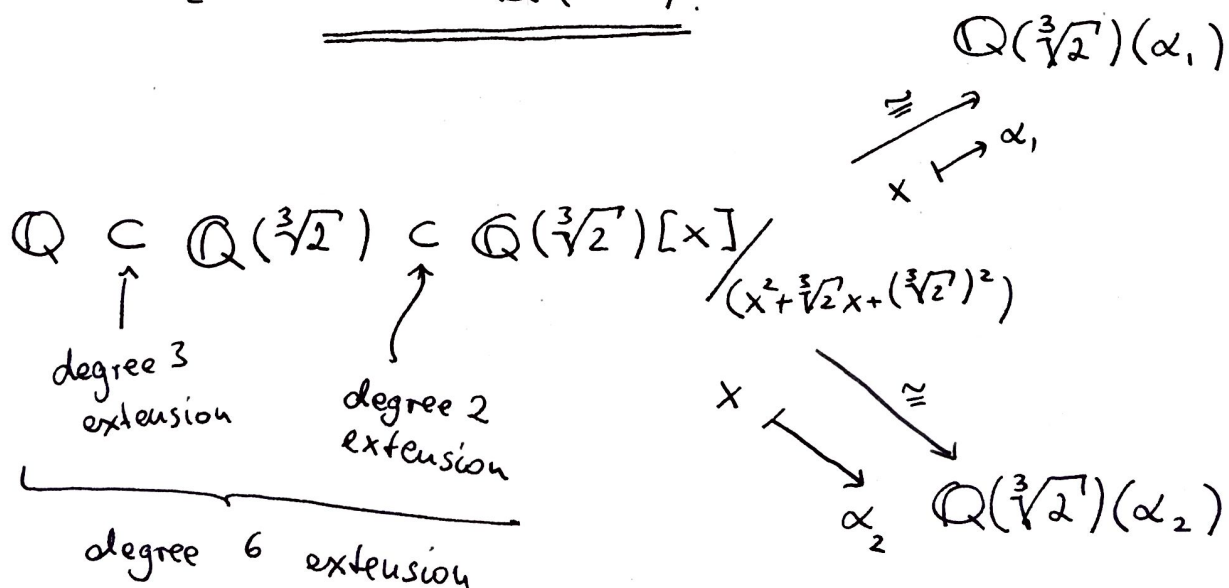 ℚ(∛2)(α₁)
≅
x ↦ α₁
ℚ ⊂ ℚ(∛2) ⊂ ℚ(∛2)[x]/(x²+∛2x+(∛2)²)
degree 3
extension
degree 2
extension
degree 6 extension
x ↦ α₂
≅
ℚ(∛2)(α₂)